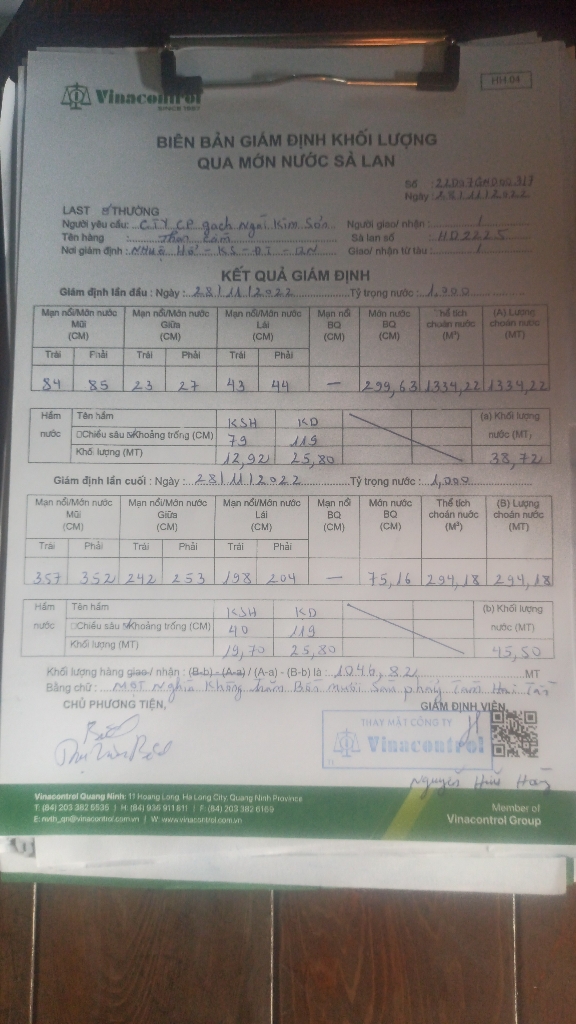 HH 04
Vinacontrol
SINCE 1957
BIÊN BẢN GIÁM ĐỊNH KHỐI LƯỢNG
QUA MỚN NƯỚC SÀ LAN
Số : 22
Ngày : 28/11/2022
LAST THƯỜNG
Người yêu cầu: CTY CP gạch Ngói Kim Sơn Người giao/ nhận : /
Tên hàng : Than cám Sà lan số : HD2225
Nơi giám định : - KS - ĐT - QN Giao/ nhận từ tàu : /
KẾT QUẢ GIÁM ĐỊNH
Giám định lần đầu : Ngày : 28/11/2022 Tỷ trọng nước : 1,000
Mạn nổi/Mớn nước Mũi (CM) Mạn nổi/Mớn nước Giữa (CM) Mạn nổi/Mớn nước Lái (CM) Mạn nổi BQ (CM) Mớn nước BQ (CM) Thể tích choán nước (M³) (A) Lượng choán nước (MT)
Trái Phải Trái Phải Trái Phải
84 85 23 27 43 44 — 299,63 1334,22 1334,22
Hầm nước Tên hầm KSH KD (a) Khối lượng nước (MT)
Chiều sâu Khoảng trống (CM) 79 119
Khối lượng (MT) 12,92 25,80 38,72
Giám định lần cuối : Ngày : 28/11/2022 Tỷ trọng nước : 1,000
Mạn nổi/Mớn nước Mũi (CM) Mạn nổi/Mớn nước Giữa (CM) Mạn nổi/Mớn nước Lái (CM) Mạn nổi BQ (CM) Mớn nước BQ (CM) Thể tích choán nước (M³) (B) Lượng choán nước (MT)
Trái Phải Trái Phải Trái Phải
357 352 242 253 198 204 — 75,16 294,18 294,18
Hầm nước Tên hầm KSH KD (b) Khối lượng nước (MT)
Chiều sâu Khoảng trống (CM) 40 119
Khối lượng (MT) 19,70 25,80 45,50
Khối lượng hàng giao/ nhận : (B-b) - (A-a) / (A-a) - (B-b) là : 1046,82 MT
Bằng chữ : Một Nghìn Không trăm Bốn mươi Sáu phẩy Tám Hai Tấn
CHỦ PHƯƠNG TIỆN, GIÁM ĐỊNH VIÊN,
THAY MẶT CÔNG TY
Vinacontrol
Nguyễn
Vinacontrol Quang Ninh: 11 Hoang Long, Ha Long City, Quang Ninh Province
T: (84) 203 382 5535 | H: (84) 936 911 811 | F: (84) 203 382 6169
E: nvth_qn@vinacontrol.com.vn | W: www.vinacontrol.com.vn
Member of
Vinacontrol Group